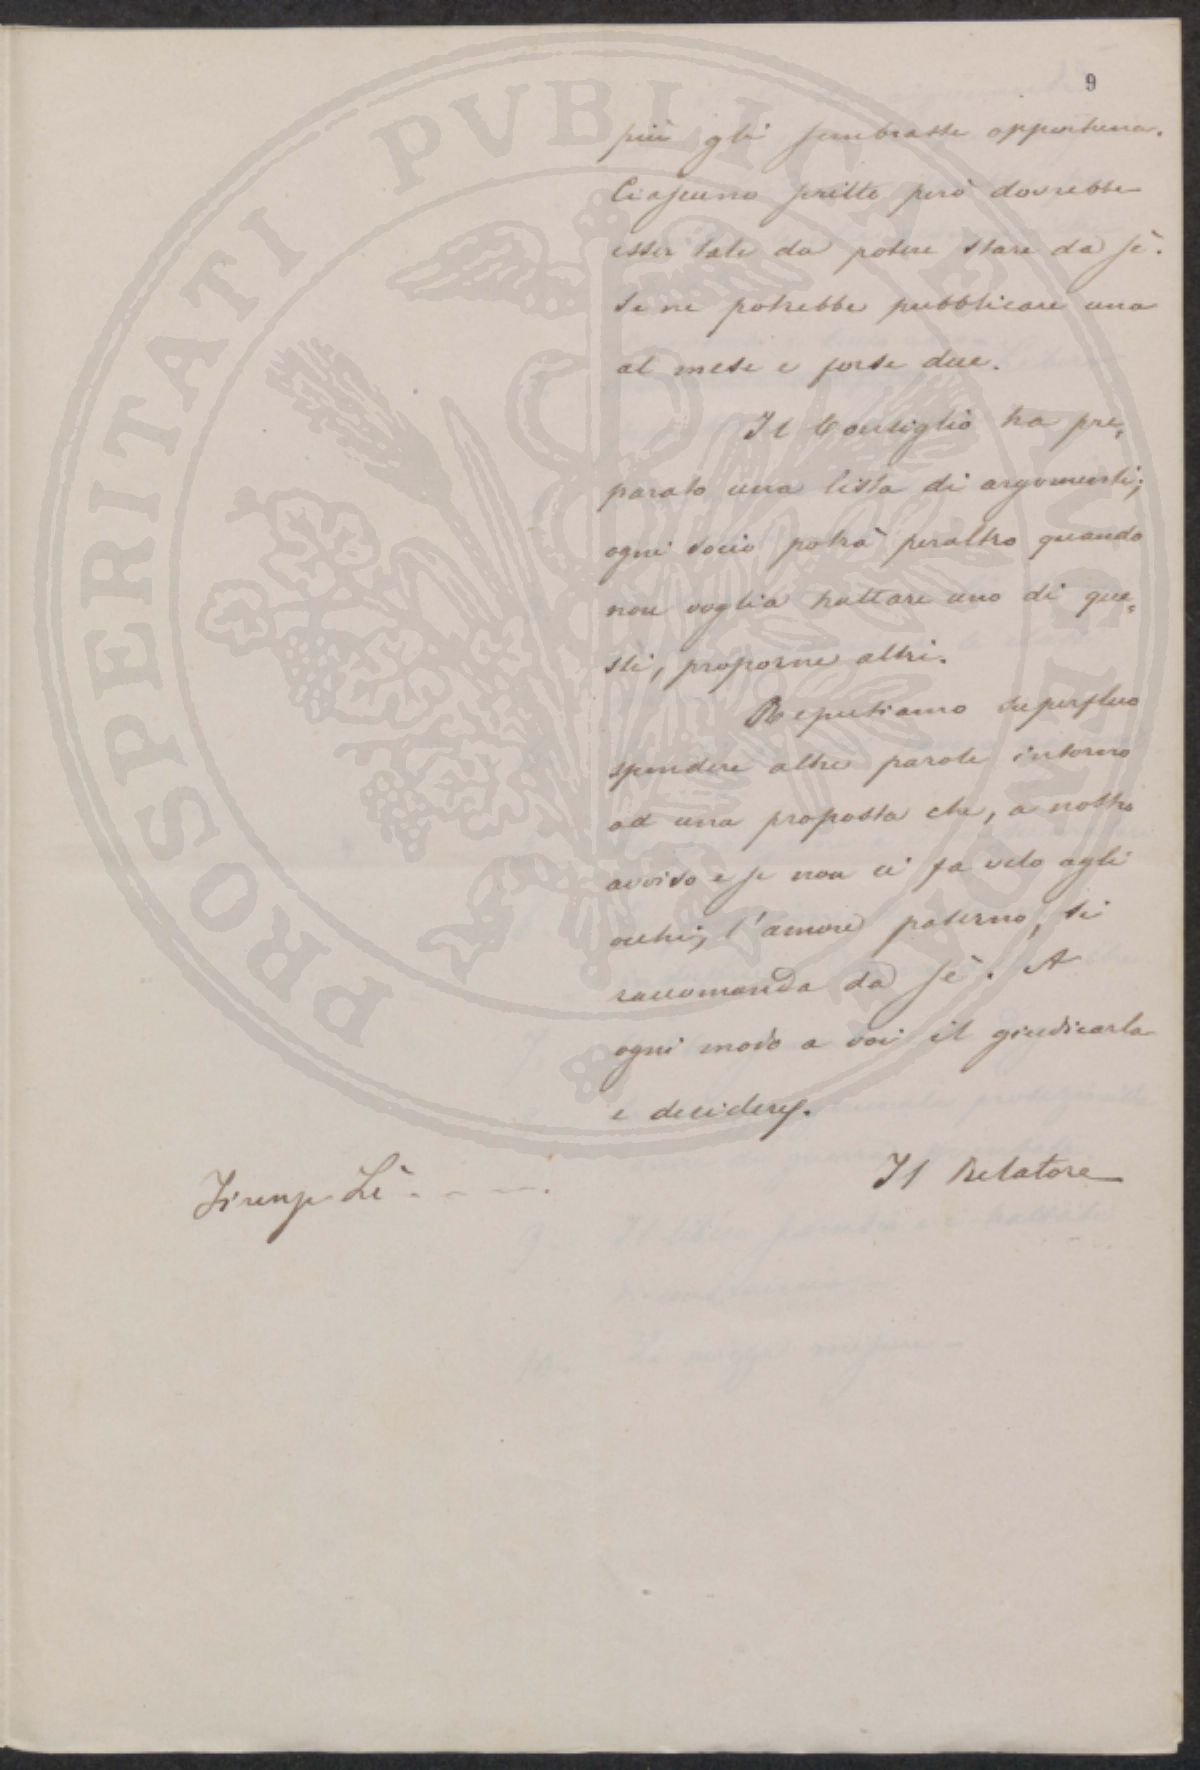 9
più gli sembrasse opportuna.
Ciascuno scritto però dovrebbe
esser tale da potere stare da sè.
Se ne potrebbe pubblicare una
al mese e forse due.
Il Consiglio ha pre=
parato una lista di argomenti;
ogni socio potrà peraltro quando
non voglia trattare uno di que=
sti, proporne altri.
Reputiamo superfluo
spendere altre parole intorno
ad una proposta che, a nostro
avviso e se non ci fa velo agli
occhi, l'amore paterno, si
raccomanda da sè. A
ogni modo a voi il giudicarla
e decidere.
Il Relatore
Firenze Lì - - - .
PROSPERITATI PVBLICAE AVGENDAE